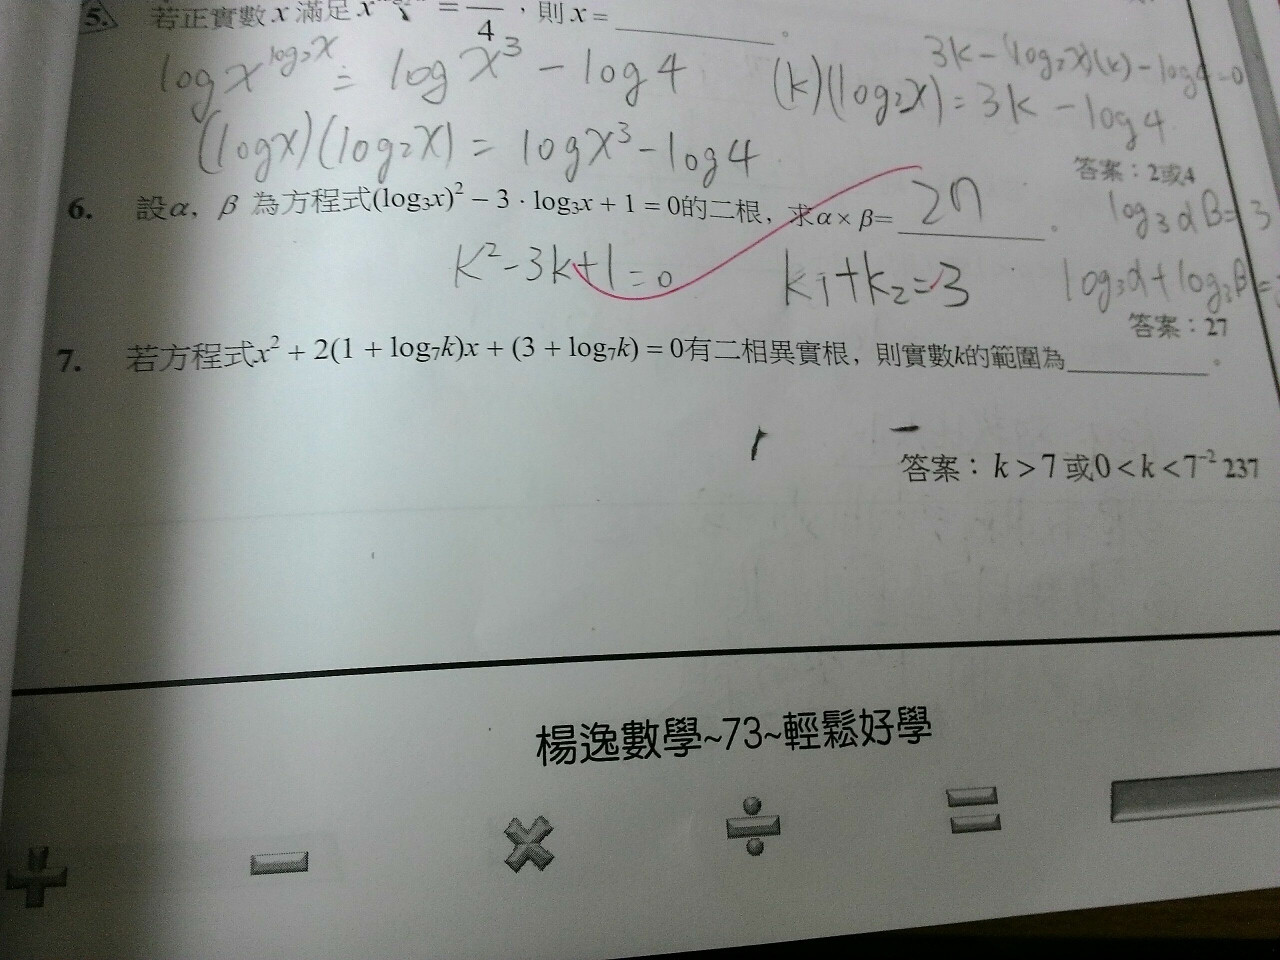 5. 若正實數 x 滿足 x = 4 ，則 x = ________ 。
log x^{log₂x} = log x³ − log 4
3k − (log₂x)(k) − log4 = 0
(k)(log₂x) = 3k − log 4
(log x)(log₂x) = log x³ − log 4
答案：2或4
6. 設α，β 為方程式(log₃x)² − 3 · log₃x + 1 = 0的二根，求α × β= 27 。
log₃αβ = 3
k² − 3k + 1 = 0
k₁ + k₂ = 3
log₃α + log₃β =
答案：27
7. 若方程式x² + 2(1 + log₇k)x + (3 + log₇k) = 0有二相異實根，則實數k的範圍為________ 。
答案：k > 7 或0 < k < 7⁻² 237
楊逸數學~73~輕鬆好學
+ − × ÷ =